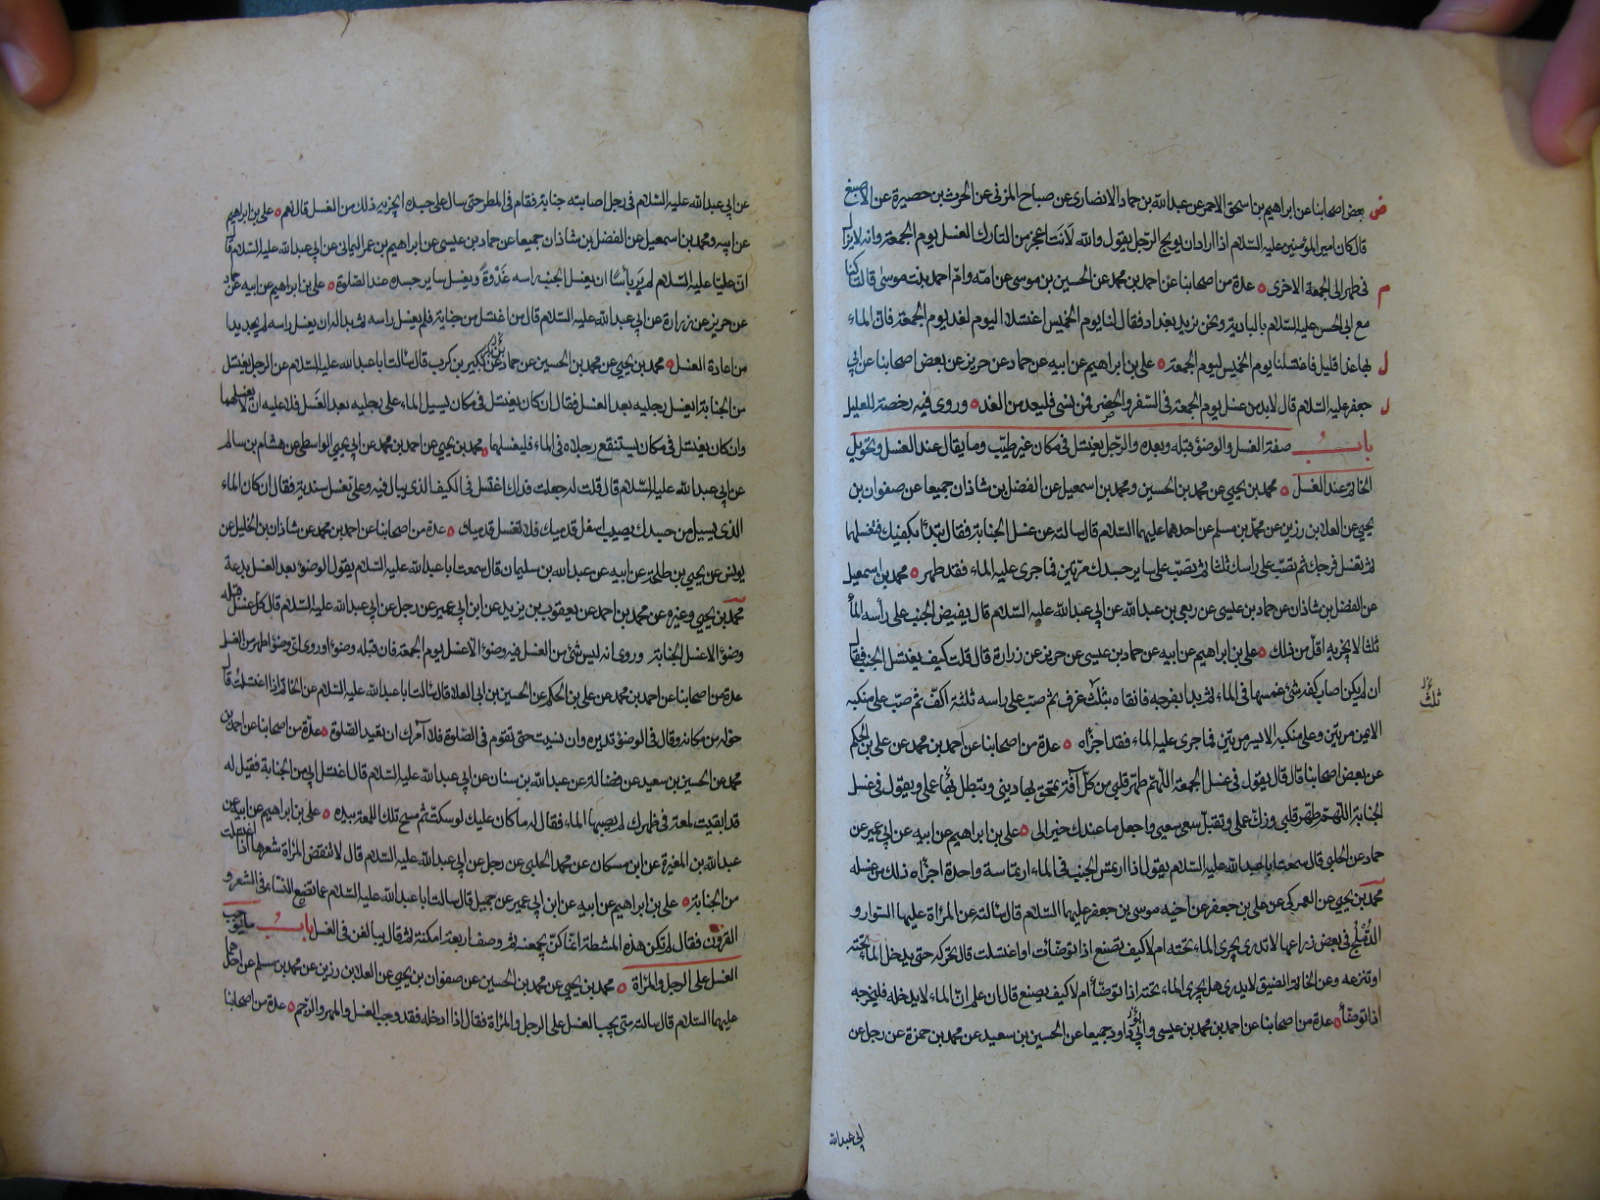 بعض اصحابنا عن ابراهيم بن اسحق الاحمر عن عبدالله بن حماد الانصارى عن صباح المزنى عن الحرث بن حصيرة عن الاصبغ
قال كان امير المؤمنين عليه السلام اذا اراد ان يوبخ الرجل يقول والله لانت اعجز من التارك الغسل يوم الجمعة وانه لايزال
فى طهر الى الجمعة الاخرى عدة من اصحابنا عن احمد بن محمد عن الحسين بن موسى عن امه وام احمد بنت موسى قالتا كنا
مع ابى الحسن عليه السلام بالبادية ونحن نريد بغداد فقال لنا يوم الخميس اغتسلا اليوم لغد يوم الجمعة فان الماء
بها غدا قليل فاغتسلنا يوم الخميس ليوم الجمعة على بن ابراهيم عن ابيه عن حماد عن حريز عن بعض اصحابنا عن ابى
جعفر عليه السلام قال لابد من غسل يوم الجمعة فى السفر والحضر فمن نسى فليعد من الغد وروى فيه رخصة للعليل
باب صفة الغسل والوضوء قبله وبعده والرجل يغتسل فى مكان غير طيب وما يقال عند الغسل وتحويل
الخاتم عند الغسل محمد بن يحيى عن محمد بن الحسين ومحمد بن اسمعيل عن الفضل بن شاذان جميعا عن صفوان بن
يحيى عن العلا بن رزين عن محمد بن مسلم عن احدهما عليهما السلام قال سالته عن غسل الجنابة فقال تبدأ بكفيك فتغسلهما
ثم تغسل فرجك ثم تصب على راسك ثلثا ثم تصب على ساير جسدك مرتين فما جرى عليه الماء فقد طهر محمد بن اسمعيل
عن الفضل بن شاذان عن حماد بن عيسى عن ربعى بن عبدالله عن ابى عبدالله عليه السلام قال يفيض الجنب على رأسه الماء
ثلثا لايجزيه اقل من ذلك على بن ابراهيم عن ابيه عن حماد بن عيسى عن حريز عن زرارة قال قلت كيف يغتسل الجنب فقال
ان لم يكن اصاب كفه شئ غمسها فى الماء ثم بدا بفرجه فانقاه بثلث غرف ثم صب على راسه ثلثة اكف ثم صب على منكبه
الايمن مرتين وعلى منكبه الايسر مرتين فما جرى عليه الماء فقد اجزاه عدة من اصحابنا عن احمد بن محمد عن على بن الحكم
عن بعض اصحابنا قال قال يقول فى غسل الجمعة اللهم طهر قلبى من كل آفة تمحق بها دينى وتبطل بها عملى ويقول فى غسل
الجنابة اللهم طهر قلبى وزك عملى وتقبل سعيى واجعل ما عندك خيرا لى على بن ابراهيم عن ابيه عن ابى عمير عن
حماد عن الحلبى قال سمعت ابا عبدالله عليه السلام يقول اذا ارتمس الجنب فى الماء ارتماسة واحدة اجزاه ذلك من غسله
محمد بن يحيى عن العمركى عن على بن جعفر عن اخيه موسى بن جعفر عليهما السلام قال سالته عن المراة عليها السوار و
الدملج فى بعض ذراعها لاتدرى يجرى الماء تحته ام لا كيف تصنع اذا توضات او اغتسلت قال تحركه حتى يدخل الماء تحته
او تنزعه وعن الخاتم الضيق لايدرى هل يجرى الماء تحته اذا توضأ ام لا كيف يصنع قال ان علم ان الماء لايدخله فليخرجه
اذا توضأ عدة من اصحابنا عن احمد بن محمد بن عيسى وابى داود جميعا عن الحسين بن سعيد عن محمد بن حمزة عن رجل عن
ابى عبدالله
عن ابى عبدالله عليه السلام فى رجل اصابته جنابة فقام فى المطر حتى سال على جسده ايجزيه ذلك من الغسل قال نعم على بن ابراهيم
عن ابيه ومحمد بن اسمعيل عن الفضل بن شاذان جميعا عن حماد بن عيسى عن ابراهيم بن عمر اليمانى عن ابى عبدالله عليه السلام قال
ان عليا عليه السلام لم ير باسا ان يغسل الجنب راسه غدوة ويغسل ساير جسده عند الصلوة على بن ابراهيم عن ابيه عن حماد
عن حريز عن زرارة عن ابى عبدالله عليه السلام قال من اغتسل من جنابة فلم يغسل راسه ثم بدا له ان يغسل راسه لم يجد بدا
من اعادة الغسل محمد بن يحيى عن محمد بن الحسين عن حماد عن بكير بن كرب قال سالت ابا عبدالله عليه السلام عن الرجل يغتسل
من الجنابة ايغسل رجليه بعد الغسل فقال ان كان يغتسل فى مكان يسيل الماء على رجليه بعد الغسل فلا عليه ان لا يغسلهما
وان كان يغتسل فى مكان يستنقع رجلاه فى الماء فليغسلهما محمد بن يحيى عن احمد بن محمد عن ابى يحيى الواسطى عن هشام بن سالم
عن ابى عبدالله عليه السلام قال قلت له جعلت فداك اغتسل فى الكيف الذى يبال فيه وعلى نعل سندية فقال ان كان الماء
الذى يسيل من جسدك يصيب اسفل قدميك فلا تغسل قدميك عدة من اصحابنا عن احمد بن محمد عن شاذان بن الخليل عن
يونس عن يحيى بن طلحة عن ابيه عن عبدالله بن سليمان قال سمعت ابا عبدالله عليه السلام يقول الوضوء بعد الغسل بدعة
محمد بن يحيى وغيره عن محمد بن احمد عن يعقوب بن يزيد عن ابن ابى عمير عن رجل عن ابى عبدالله عليه السلام قال كل غسل قبله
وضوء الا غسل الجنابة وروى انه ليس شئ من الغسل فيه وضوء الا غسل يوم الجمعة فان قبله وضوءا وروى اى وضوء اطهر من الغسل
عدة من اصحابنا عن احمد بن محمد عن على بن الحكم عن الحسين بن ابى العلا قال سالت ابا عبدالله عليه السلام عن الخاتم اذا اغتسلت قال
حوله من مكانه وقال فى الوضوء تديره وان نسيت حتى تقوم فى الصلوة فلا آمرك ان تعيد الصلوة عدة من اصحابنا عن احمد بن
محمد عن الحسين بن سعيد عن فضالة عن عبدالله بن سنان عن ابى عبدالله عليه السلام قال اغتسل ابى من الجنابة فقيل له
قد ابقيت لمعة فى ظهرك لم يصبها الماء فقال له ما كان عليك لو سكت ثم مسح تلك اللمعة بيده على بن ابراهيم عن ابيه عن
عبدالله بن المغيرة عن ابن مسكان عن محمد الحلبى عن رجل عن ابى عبدالله عليه السلام قال لاتنقض المراة شعرها اذا اغتسلت
من الجنابة على بن ابراهيم عن ابيه عن ابن ابى عمير عن جميل قال سالت ابا عبدالله عليه السلام عما تصنع النساء فى الشعر و
القرون فقال لم تكن هذه المشطة انما كن يجمعنه ثم وصف اربعة امكنة ثم قال يبالغن فى الغسل باب ما يوجب
الغسل على الرجل والمراة محمد بن يحيى عن محمد بن الحسين عن صفوان بن يحيى عن العلا بن رزين عن محمد بن مسلم عن احدهما
عليهما السلام قال سالته متى يجب الغسل على الرجل والمراة فقال اذا ادخله فقد وجب الغسل والمهر والرجم عدة من اصحابنا